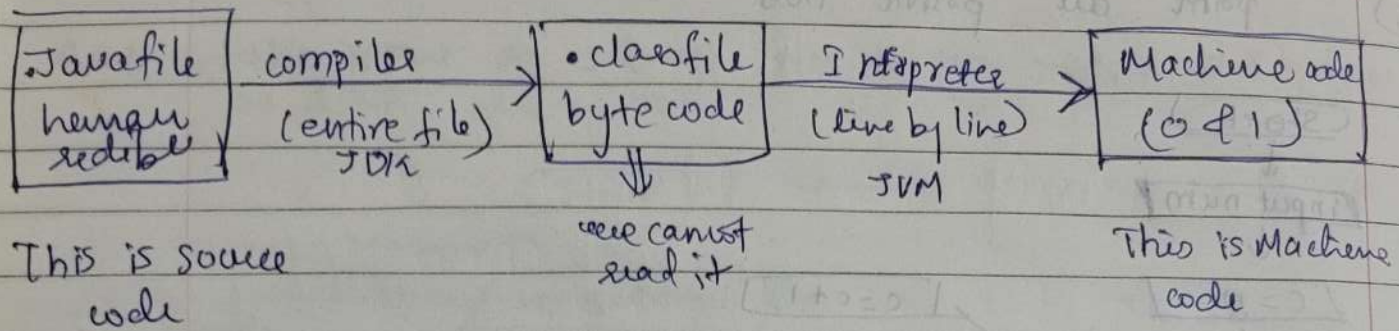 .Javafile
human
redible
compiler
(entire file)
JDK
.classfile
byte code
Interpreter
(line by line)
JVM
Machine code
(0 & 1)
This is source
code
we cannot
read it
This is Machine
code
input num
c = c+1